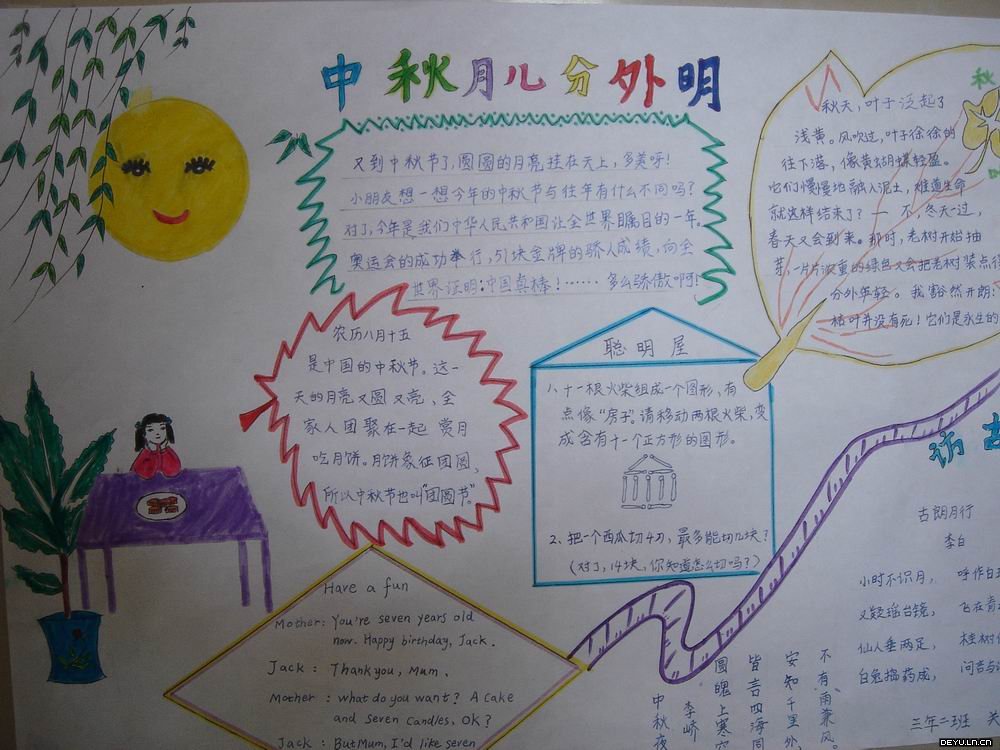 中秋月儿分外明
又到中秋节了,圆圆的月亮挂在天上,多美呀!
小朋友想一想今年的中秋节与往年有什么不同吗?
对了,今年是我们中华人民共和国让全世界瞩目的一年。
奥运会的成功举行,51块金牌的骄人成绩,向全
世界证明:中国真棒!……多么骄傲啊!
秋
秋天,叶子泛起了
浅黄。风吹过,叶子徐徐的
往下落,像黄蝴蝶轻盈。
它们慢慢地融入泥土,难道生命
就这样结束了?一不,冬天一过,
春天又会到来。那时,老树开始抽
芽,一片片浓重的绿色又会把老树装点得
分外年轻。我豁然开朗:
枯叶并没有死!它们是永生的
农历八月十五
是中国的中秋节。这一
天的月亮又圆又亮、全
家人团聚在一起赏月
吃月饼。月饼象征团圆,
所以中秋节也叫“团圆节”。
聪明屋
1、十一根火柴组成一个图形,有
点像“房子”。请移动两根火柴,变
成含有十一个正方形的图形。
2、把一个西瓜切4刀,最多能切几块?
(对了,14块,你知道怎么切吗?)
Have a fun
Mother: You're seven years old
now. Happy birthday, Jack.
Jack: Thank you, Mum.
Mother: what do you want? A cake
and seven candles, OK?
Jack: But Mum, I'd like seven
访古
古朗月行
李白
小时不识月, 呼作白玉
又疑瑶台镜, 飞在青
仙人垂两足, 桂树
白兔捣药成, 问言与
中秋夜
李峤
圆魄上寒空
皆言四海同
安知千里外
不有雨兼风
三年二班 关
DEYU.LN.CN